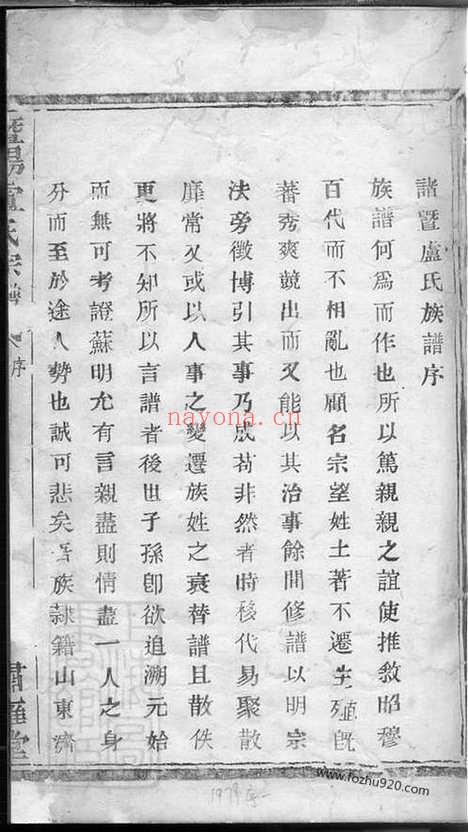 諸暨盧氏族譜序
族譜何爲而作也所以篤親親之誼使推敘昭穆
百代而不相亂也顧名宗望姓土著不遷生殖旣
蕃秀爽競出而又能以其治事餘閒修譜以明宗
法旁徵博引其事乃成苟非然者時移代易聚散
靡常又或以人事之變遷族姓之衰替譜且散佚
更將不知所以言譜者後世子孫卽欲追溯元始
而無可考證蘇明允有言親盡則情盡一人之身
分而至於途人勢也誠可悲矣吾族隸籍山東濟
暨陽盧氏宗譜
序
肅雝堂
nayona.cn
1979
www.fozhu920.com